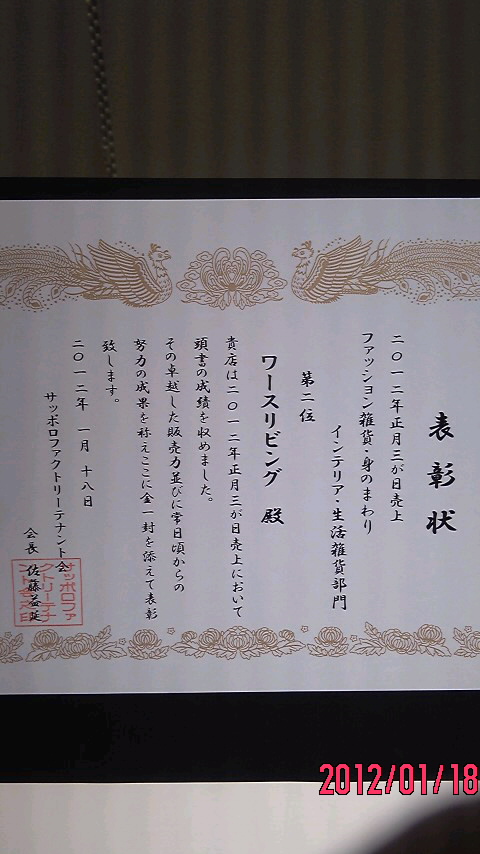 表彰状
二〇一二年正月三が日売上
ファッション雑貨・身のまわり
インテリア・生活雑貨部門
第二位
ワースリビング 殿
貴店は二〇一二年正月三が日売上において
頭書の成績を収めました。
その卓越した販売力並びに常日頃からの
努力の成果を称えここに金一封を添えて表彰
致します。
二〇一二年 一月 十八日
サッポロファクトリーテナント会
会長 佐藤益延
サッポロファ
クトリーテナ
ント会
2012/01/18